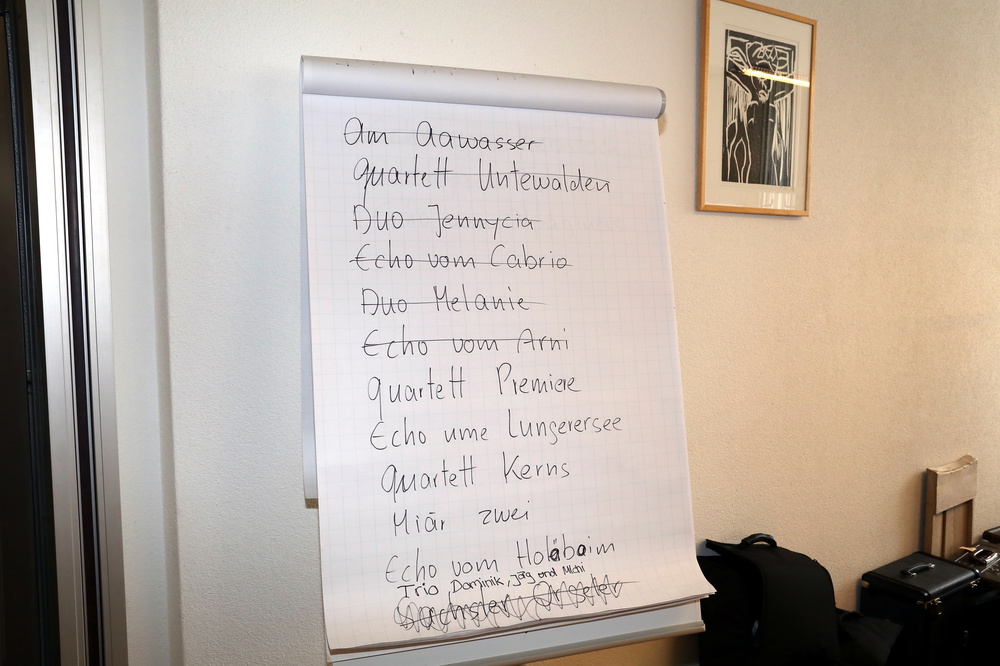 Am Aawasser
Quartett Untewalden
Duo Jennycia
Echo vom Cabrio
Duo Melanie
Echo vom Arni
Quartett Premiere
Echo ume Lungerersee
Quartett Kerns
Miär zwei
Echo vom Holäbaim
Trio Dominik, Jörg und Michi